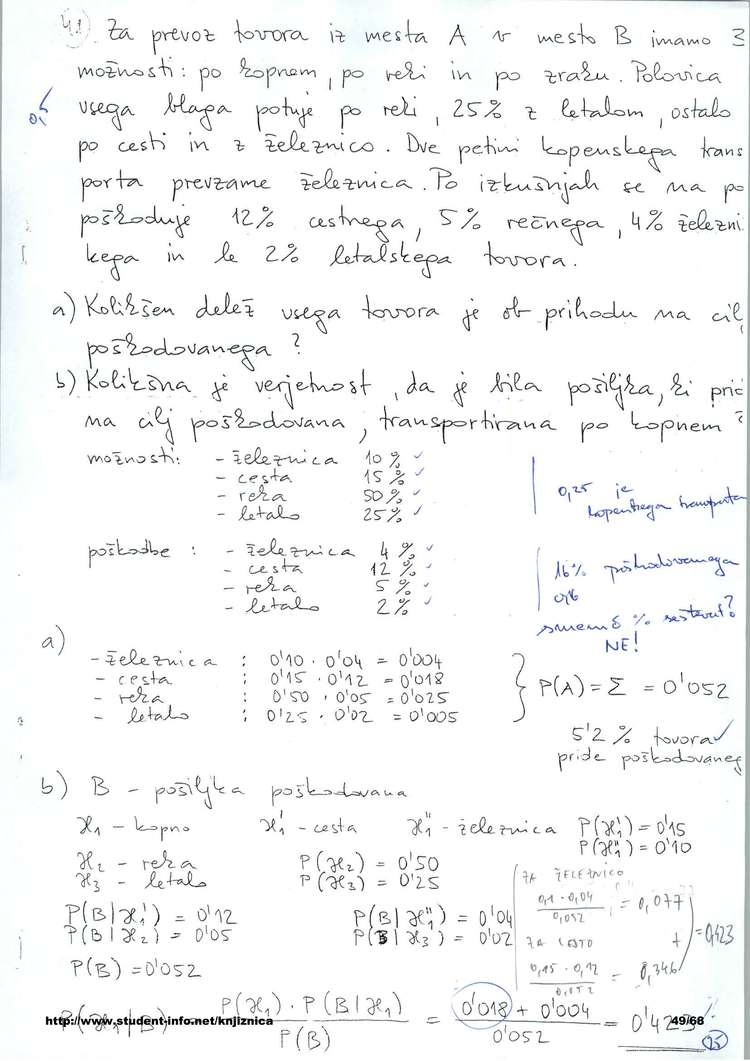 4.) Za prevoz tovora iz mesta A v mesto B imamo 3
možnosti: po kopnem, po reki in po zraku. Polovica
vsega blaga potuje po reki, 25% z letalom, ostalo
po cesti in z železnico. Dve petini kopenskega trans
porta prevzame železnica. Po izkušnjah se na po
poškoduje 12% cestnega, 5% rečnega, 4% železni
kega in le 2% letalskega tovora.
a) Kolikšen delež vsega tovora je ob prihodu na cilj
poškodovanega?
b) Kolikšna je verjetnost, da je bila pošiljka, ki prid
na cilj poškodovana, transportirana po kopnem?
možnosti: - železnica 10% ✓
- cesta 15% ✓
- reka 50% ✓
- letalo 25% ✓
0,25 je
kopenskega transporta
poškodbe : - železnica 4% ✓
- cesta 12% ✓
- reka 5% ✓
- letalo 2% ✓
16% poškodovanega
smemo % seštevat?
NE!
a)
- železnica : 0'10 · 0'04 = 0'004
- cesta : 0'15 · 0'12 = 0'018
- reka : 0'50 · 0'05 = 0'025
- letalo : 0'25 · 0'02 = 0'005
P(A) = Σ = 0'052
5'2 % tovora ✓
pride poškodovaneg
b) B - pošiljka poškodovana
H₁ - kopno H₁' - cesta H₁'' - železnica P(H₁') = 0'15
P(H₁'') = 0'10
H₂ - reka P(H₂) = 0'50
H₃ - letalo P(H₃) = 0'25
P(B|H₁') = 0'12 P(B|H₁'') = 0'04
P(B|H₂) = 0'05 P(B|H₃) = 0'02
P(B) = 0'052
ZA ŽELEZNICO
0,1 · 0,04 / 0,052 = 0,077
+
ZA CESTO
0,15 · 0,12 / 0,052 = 0,346
= 0,423
P(H₁|B) = P(H₁) · P(B|H₁) / P(B) = 0'018 + 0'004 / 0'052 = 0'423
25
http://www.student-info.net/knjiznica
49/68